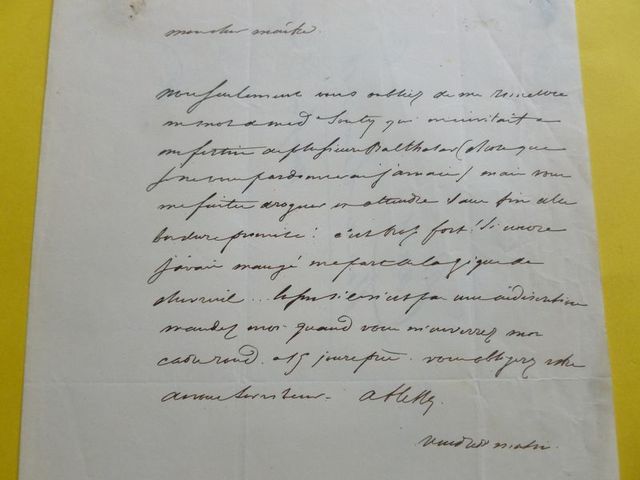 mon cher maître.
non seulement vous oubliez de me remettre
un mot de mad Souty qui m'invitait a
un festin de plusieurs Balthazar (chose que
je ne vous pardonnerai jamais) mais vous
me faites droguer en attendre sau fin cette
bordure promise! c'est trop fort! Si encore
j'avais mangé ma part de la gigue de
chevreuil ... Enfin si ce n'est pas une indiscrétion
mandez moi quand vous m'enverrez mon
cadre rond. a 15 jours près. vous obligerez votre
dévoué serviteur -
vendredi matin.